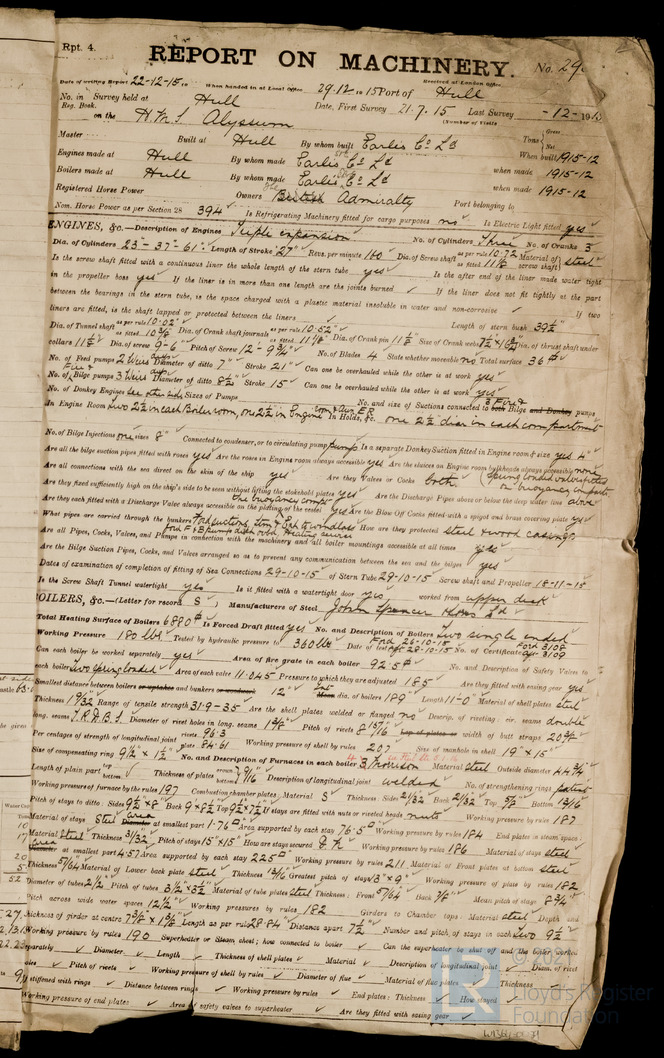 Rpt. 4.
REPORT ON MACHINERY.
No. 29
Date of writing Report 22-12-15 When handed in at Local Office 29.12 1915 Port of Hull
Received at London Office
No. in Survey held at Hull Date, First Survey 21.7.15 Last Survey -12- 19
Reg. Book.
(Number of Visits
on the H.M.S Alyssum
Gross
Tons
Net
Master Built at Hull By whom built Earles Co Ld When built 1915-12
Engines made at Hull By whom made Earles Co Ld when made 1915-12
Boilers made at Hull By whom made Earles Co Ld when made 1915-12
Registered Horse Power Owners British Admiralty Port belonging to
Nom. Horse Power as per Section 28 394 Is Refrigerating Machinery fitted for cargo purposes no Is Electric Light fitted yes
ENGINES, &c.—Description of Engines Triple expansion No. of Cylinders Three No. of Cranks 3
Dia. of Cylinders 23-37-61 Length of Stroke 27 Revs. per minute 180 Dia. of Screw shaft as per rule 10.72 as fitted 11⅛ Material of screw shaft steel
Is the screw shaft fitted with a continuous liner the whole length of the stern tube yes Is the after end of the liner made water tight
in the propeller boss yes If the liner is in more than one length are the joints burned If the liner does not fit tightly at the part
between the bearings in the stern tube, is the space charged with a plastic material insoluble in water and non-corrosive If two
liners are fitted, is the shaft lapped or protected between the liners Length of stern bush 39½
Dia. of Tunnel shaft as per rule 10.02 as fitted 10⅜ Dia. of Crank shaft journals as per rule 10.52 as fitted 11⅛ Dia. of Crank pin 11½ Size of Crank webs Dia. of thrust shaft under
collars 11½ Dia. of screw 9-6 Pitch of Screw 12-9¾ No. of Blades 4 State whether moveable no Total surface 36
No. of Feed pumps 2 Weirs Diameter of ditto 7 Stroke 21 Can one be overhauled while the other is at work yes
No. of Bilge pumps 3 Weirs Diameter of ditto 8½ Stroke 15 Can one be overhauled while the other is at work yes
No. of Donkey Engines see other side Sizes of Pumps No. and size of Suctions connected to both Bilge and Donkey pumps
In Engine Room two 2½ in each Boiler room, one 2½ in Engine room In Holds, &c. one 2½ dia in each compartment
No. of Bilge Injections one sizes 8 Connected to condenser, or to circulating pump pump Is a separate Donkey Suction fitted in Engine room & size yes 4
Are all the bilge suction pipes fitted with roses yes Are the roses in Engine room always accessible yes Are the sluices on Engine room bulkheads always accessible none
Are all connections with the sea direct on the skin of the ship yes Are they Valves or Cocks both
Are they fixed sufficiently high on the ship's side to be seen without lifting the stokehold plates yes Are the Discharge Pipes above or below the deep water line above
Are they each fitted with a Discharge Valve always accessible on the plating of the vessel yes Are the Blow Off Cocks fitted with a spigot and brass covering plate yes
What pipes are carried through the bunkers How are they protected steel & wood casings
Are all Pipes, Cocks, Valves, and Pumps in connection with the machinery and all boiler mountings accessible at all times yes
Are the Bilge Suction Pipes, Cocks, and Valves arranged so as to prevent any communication between the sea and the bilges yes
Dates of examination of completion of fitting of Sea Connections 29-10-15 of Stern Tube 29-10-15 Screw shaft and Propeller 18-11-15
Is the Screw Shaft Tunnel watertight yes Is it fitted with a watertight door yes worked from upper deck
BOILERS, &c.—(Letter for record S ) Manufacturers of Steel John Spencer & Sons Ld
Total Heating Surface of Boilers 6880 Is Forced Draft fitted yes No. and Description of Boilers Two single ended
Working Pressure 180 lbs Tested by hydraulic pressure to 360 lbs Date of test Ford 26-10-15 Aft 28-10-15 No. of Certificate Ford 3108 Aft 3109
Can each boiler be worked separately yes Area of fire grate in each boiler 92.5 No. and Description of Safety Valves to
each boiler Two spring loaded Area of each valve 11.045 Pressure to which they are adjusted 185 Are they fitted with easing gear yes
Smallest distance between boilers or uptakes and bunkers or woodwork 12" Mean dia. of boilers 189 Length 11-0 Material of shell plates steel
Thickness 19/32 Range of tensile strength 31.9-35 Are the shell plates welded or flanged no Descrip. of riveting: cir. seams double
long. seams T.R.D.B.S. Diameter of rivet holes in long. seams Pitch of rivets width of butt straps 20¾
Per centages of strength of longitudinal joint rivets 96.3 plate 84.61 Working pressure of shell by rules 207 Size of manhole in shell 19" x 15"
Size of compensating ring 9½ x 1½ No. and Description of Furnaces in each boiler 3 Morison Material steel Outside diameter 44¾
Length of plain part top bottom Thickness of plates crown bottom 9/16 Description of longitudinal joint welded No. of strengthening rings
Working pressure of furnace by the rules 197 Combustion chamber plates: Material S Thickness: Sides 21/32 Back 21/32 Top Bottom 13/16
Pitch of stays to ditto: Sides Back 9 x 8¾ Top If stays are fitted with nuts or riveted heads nuts Working pressure by rules 187
Material of stays steel Diameter at smallest part 1.76 Area supported by each stay 76.5 Working pressure by rules 184 End plates in steam space:
Material steel Thickness 31/32 Pitch of stays 15 x 15 How are stays secured Working pressure by rules 186 Material of stays steel
Diameter at smallest part 4.57 Area supported by each stay 225 Working pressure by rules 211 Material of Front plates at bottom steel
Thickness 57/64 Material of Lower back plate steel Thickness 13/16 Greatest pitch of stays 13 x 9 Working pressure of plate by rules 182
Diameter of tubes 2½ Pitch of tubes 3½ x 3½ Material of tube plates steel Thickness: Front 57/64 Back ⅞ Mean pitch of stays 8¾
Pitch across wide water spaces 12½ Working pressures by rules 182 Girders to Chamber tops: Material steel Depth and
thickness of girder at centre 7⅝ x 1⅝ Length as per rule 28.84 Distance apart 7½ Number and pitch of stays in each Two 9½
Working pressure by rules 190 Superheater or Steam chest; how connected to boiler Can the superheater be shut off and the boiler worked
separately Diameter Length Thickness of shell plates Material Description of longitudinal joint Diam. of rivet
Pitch of rivets Working pressure of shell by rules Diameter of flue Material of flue plates Thickness
If stiffened with rings Distance between rings Working pressure by rules End plates: Thickness How stayed
Working pressure of end plates Area of safety valves to superheater Are they fitted with easing gear
© 2021
LR
Lloyd's Register
Foundation